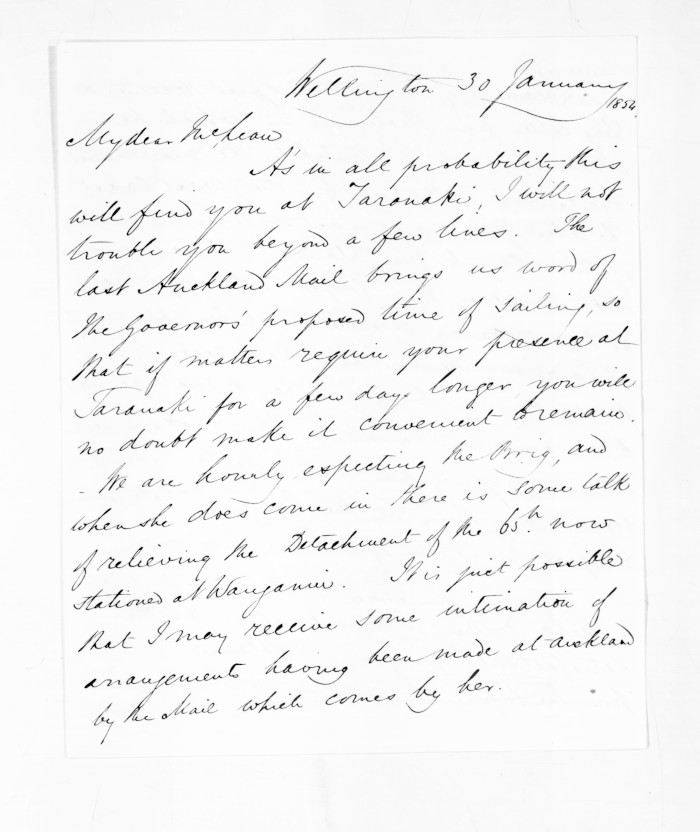 Wellington 30 January
1854.
My dear McLean
As in all probability this
will find you at Taranaki, I will not
trouble you beyond a few lines. The
last Auckland Mail brings us word of
the Governor's proposed time of sailing, so
that if matters require your presence at
Taranaki for a few days longer you will
no doubt make it convenient to remain.
- We are hourly expecting the Brig, and
when she does come in there is some talk
of relieving the Detachment of the 65th. now
stationed at Wanganui. It is just possible
that I may receive some intimation of
arrangements having been made at Auckland
by the Mail which comes by her.